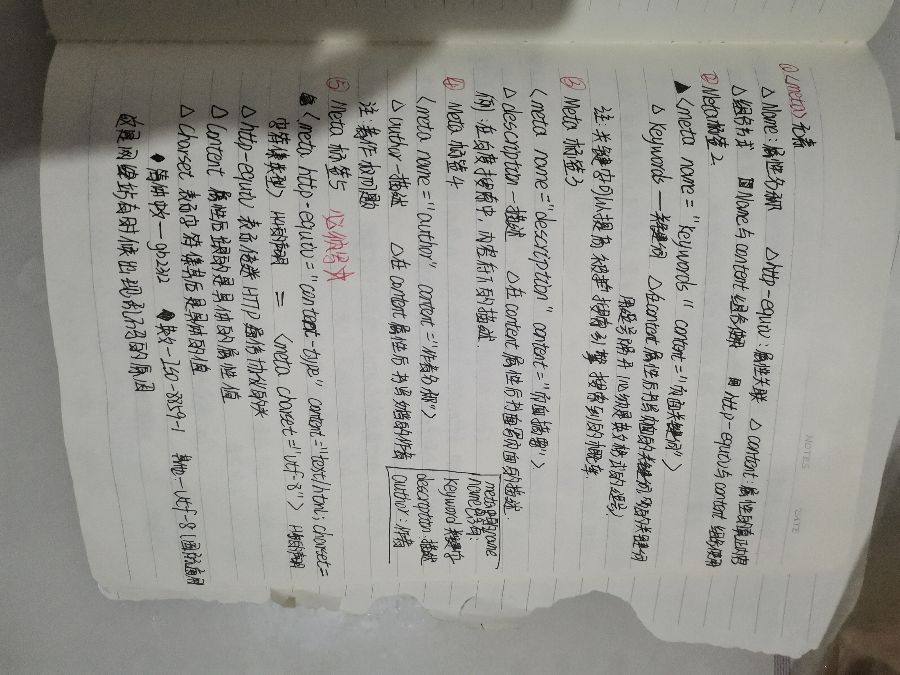 NOTES
DATE
①<meta>元素
△Name:属性分解 △http-equiv:属性关联 △content:属性的真正内容
△组合方式 Name与content组合使用 http-equiv与content组合使用
②Meta标签2
▲<meta name="keywords" content="页面关键词">
△keywords—关键词 △在content属性后书写页面的关键词
用逗号隔开(必须是英文格式的逗号)
注:关键字可以提高被搜索引擎搜索到的概率
③Meta标签3
<meta name="description" content="页面描述">
△description—描述 △在content属性后书写页面的描述
例:在百度搜索中,内容行下的描述.
④Meta标签4
<meta name="author" content="作者分解">
△author—描述 △在content属性后书写网站的作者
注:著作权问题
meta中的name
Name包含:
keyword:关键字
description:描述
author:作者
⑤Meta标签5 必编写☆
<meta http-equiv="content-type" content="text/html; charset=
字符集类型> = <meta charset="utf-8">
△http-equiv 表示传送HTTP通信协议的
△content 属性后跟的是具体的属性值
△charset 表示字符集 后是具体的值
◆简体中文—gb2312 ◆英文—ISO-8859-1 其他—utf-8(国际通用
这是网络站有时候出现乱码的原因